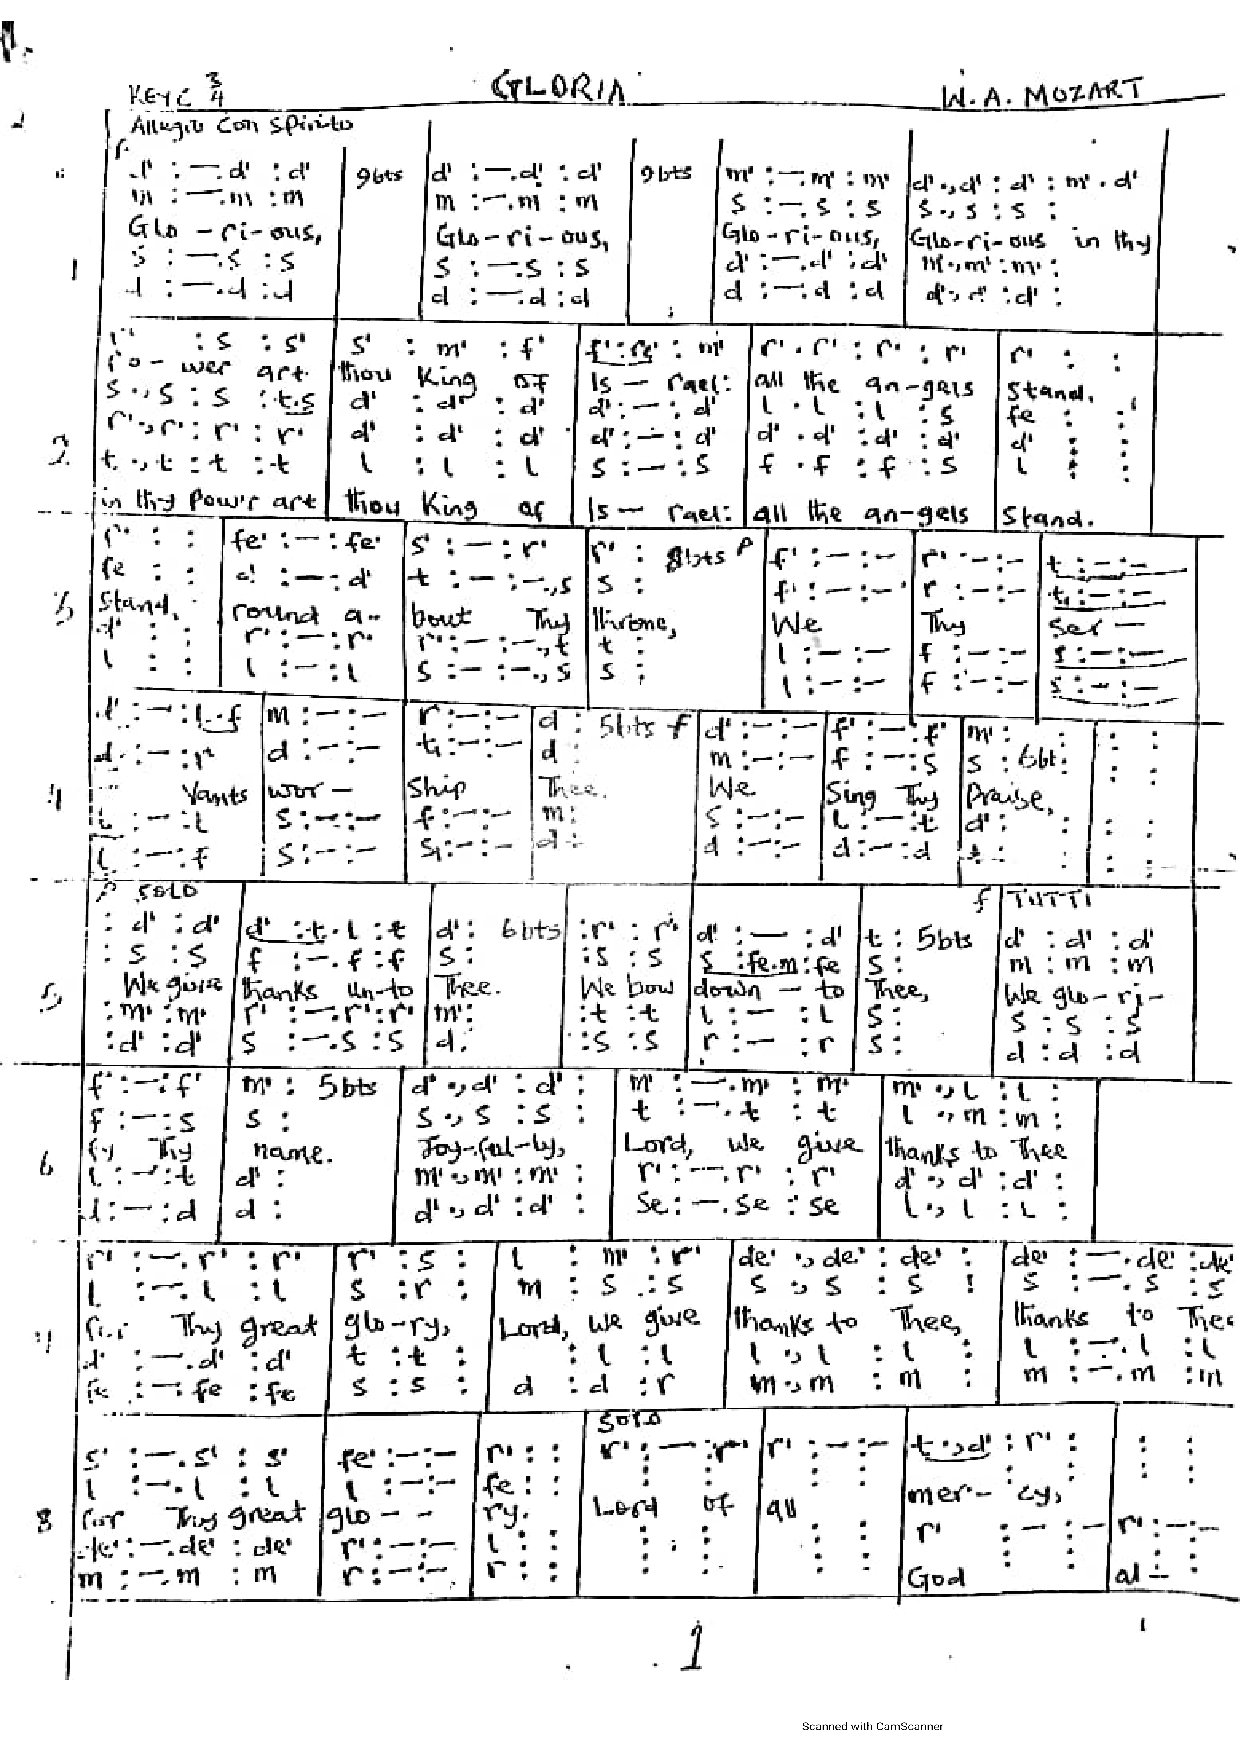 KEY C 3/4 GLORIA W. A. MOZART
Allegro Con Spirito
d' : —.d' : d' | 9bts | d' : —.d' : d' | 9bts | m' : —.m' : m' | d'.,d' : d' : m'.d'
m : —.m : m | m : —.m : m | s : —.s : s | s.,s : s :
Glo - ri - ous, Glo - ri - ous, Glo - ri - ous, Glo-ri-ous in thy
1 s : —.s : s | s : —.s : s | d' : —.d' : d' | m'.,m' : m' :
d : —.d : d | d : —.d : d | d : —.d : d | d'.,d' : d' :
r' : s : s' | s' : m' : f' | f' : r's' : m' | r'.r' : r' : r' | r' : :
Po - wer art thou King of Is — rael: all the an-gels Stand.
s.,s : s : t.s | d' : d' : d' | d' : — : d' | l.l : l : s | fe : :
2 r'.,r' : r' : r' | d' : d' : d' | d' : — : d' | d'.d' : d' : d' | d' : :
t.,t : t : t | l : l : l | s : — : s | f.f : f : s | l : :
in thy Pow'r art thou King of Is — rael: all the an-gels Stand.
r' : : | fe' : — : fe' | s' : — : r' | r' : 8bts P | f' : — : — | r' : — : — | t : — : —
fe : : | d' : — : d' | t : — : —.,s | s : | f' : — : — | r : — : — | t₁ : — : —
3 Stand. round a- bout Thy throne, We Thy Ser —
d' : : | r' : — : r' | r' : — : —.,t | t : | l : — : — | f : — : — | s : — : —
l : : | l : — : l | s : — : —.,s | s : | l : — : — | f : — : — | s : — : —
d' : — : l.f | m : — : — | r : — : — | d : 5bts f | d' : — : — | f' : — : f' | m' : :
d : — : r | d : — : — | t₁ : — : — | d : | m : — : — | f : — : s | s : 6bt :
4 Vants wor — Ship Thee. We Sing Thy Praise,
: — : l | s : — : — | f : — : — | m : | s : — : — | l : — : t | d' :
l : — : f | s : — : — | s₁ : — : — | d : | d : — : — | d : — : d | :
P SOLO f TUTTI
: d' : d' | d' : t.l : t | d' : 6bts | : r' : r' | d' : — : d' | t : 5bts | d' : d' : d'
: s : s | f : —.f : f | s : | : s : s | s : fe.m : fe | s : | m : m : m
5 We give thanks un-to Thee. We bow down — to Thee, We glo - ri -
: m' : m' | r' : —.r' : r' | m' : | : t : t | l : — : l | s : | s : s : s
: d' : d' | s : —.s : s | d : | : s : s | r : — : r | s : | d : d : d
f' : — : f' | m' : 5bts | d'.,d' : d' : | m' : —.m' : m' | m'.,l : l :
f : — : s | s : | s.,s : s : | t : —.t : t | l.,m : m :
6 fy Thy name. Joy-ful-ly, Lord, we give thanks to Thee
l : — : t | d' : | m'.,m' : m' : | r' : —.r' : r' | d'.,d' : d' :
d : — : d | d : | d'.,d' : d' : | se : —.se : se | l.,l : l :
r' : —.r' : r' | r' : s : | l : m' : r' | de'.,de' : de' : | de' : —.de' : de'
l : —.l : l | s : r : | m : s : s | s.,s : s : | s : —.s : s
7 for Thy great glo-ry, Lord, we give thanks to Thee, thanks to Thee
d' : —.d' : d' | t : t : | : l : l | l.,l : l : | l : —.l : l
fe : —.fe : fe | s : s : | d : d : r | m.,m : m : | m : —.m : m
SOLO
s' : —.s' : s' | fe' : — : — | r' : : | r' : — : r' | r' : — : — | t.,d' : r' : | : :
l : —.l : l | l : — : — | fe : : | : : | : : | : : | : :
8 for Thy great glo - - ry. Lord of all mer - cy,
de' : —.de' : de' | r' : — : — | l : : | : : | : : | r' : — : — | r' : — : —
m : —.m : m | r : — : — | r : : | : : | : : | : : | : :
God al —
1
Scanned with CamScanner